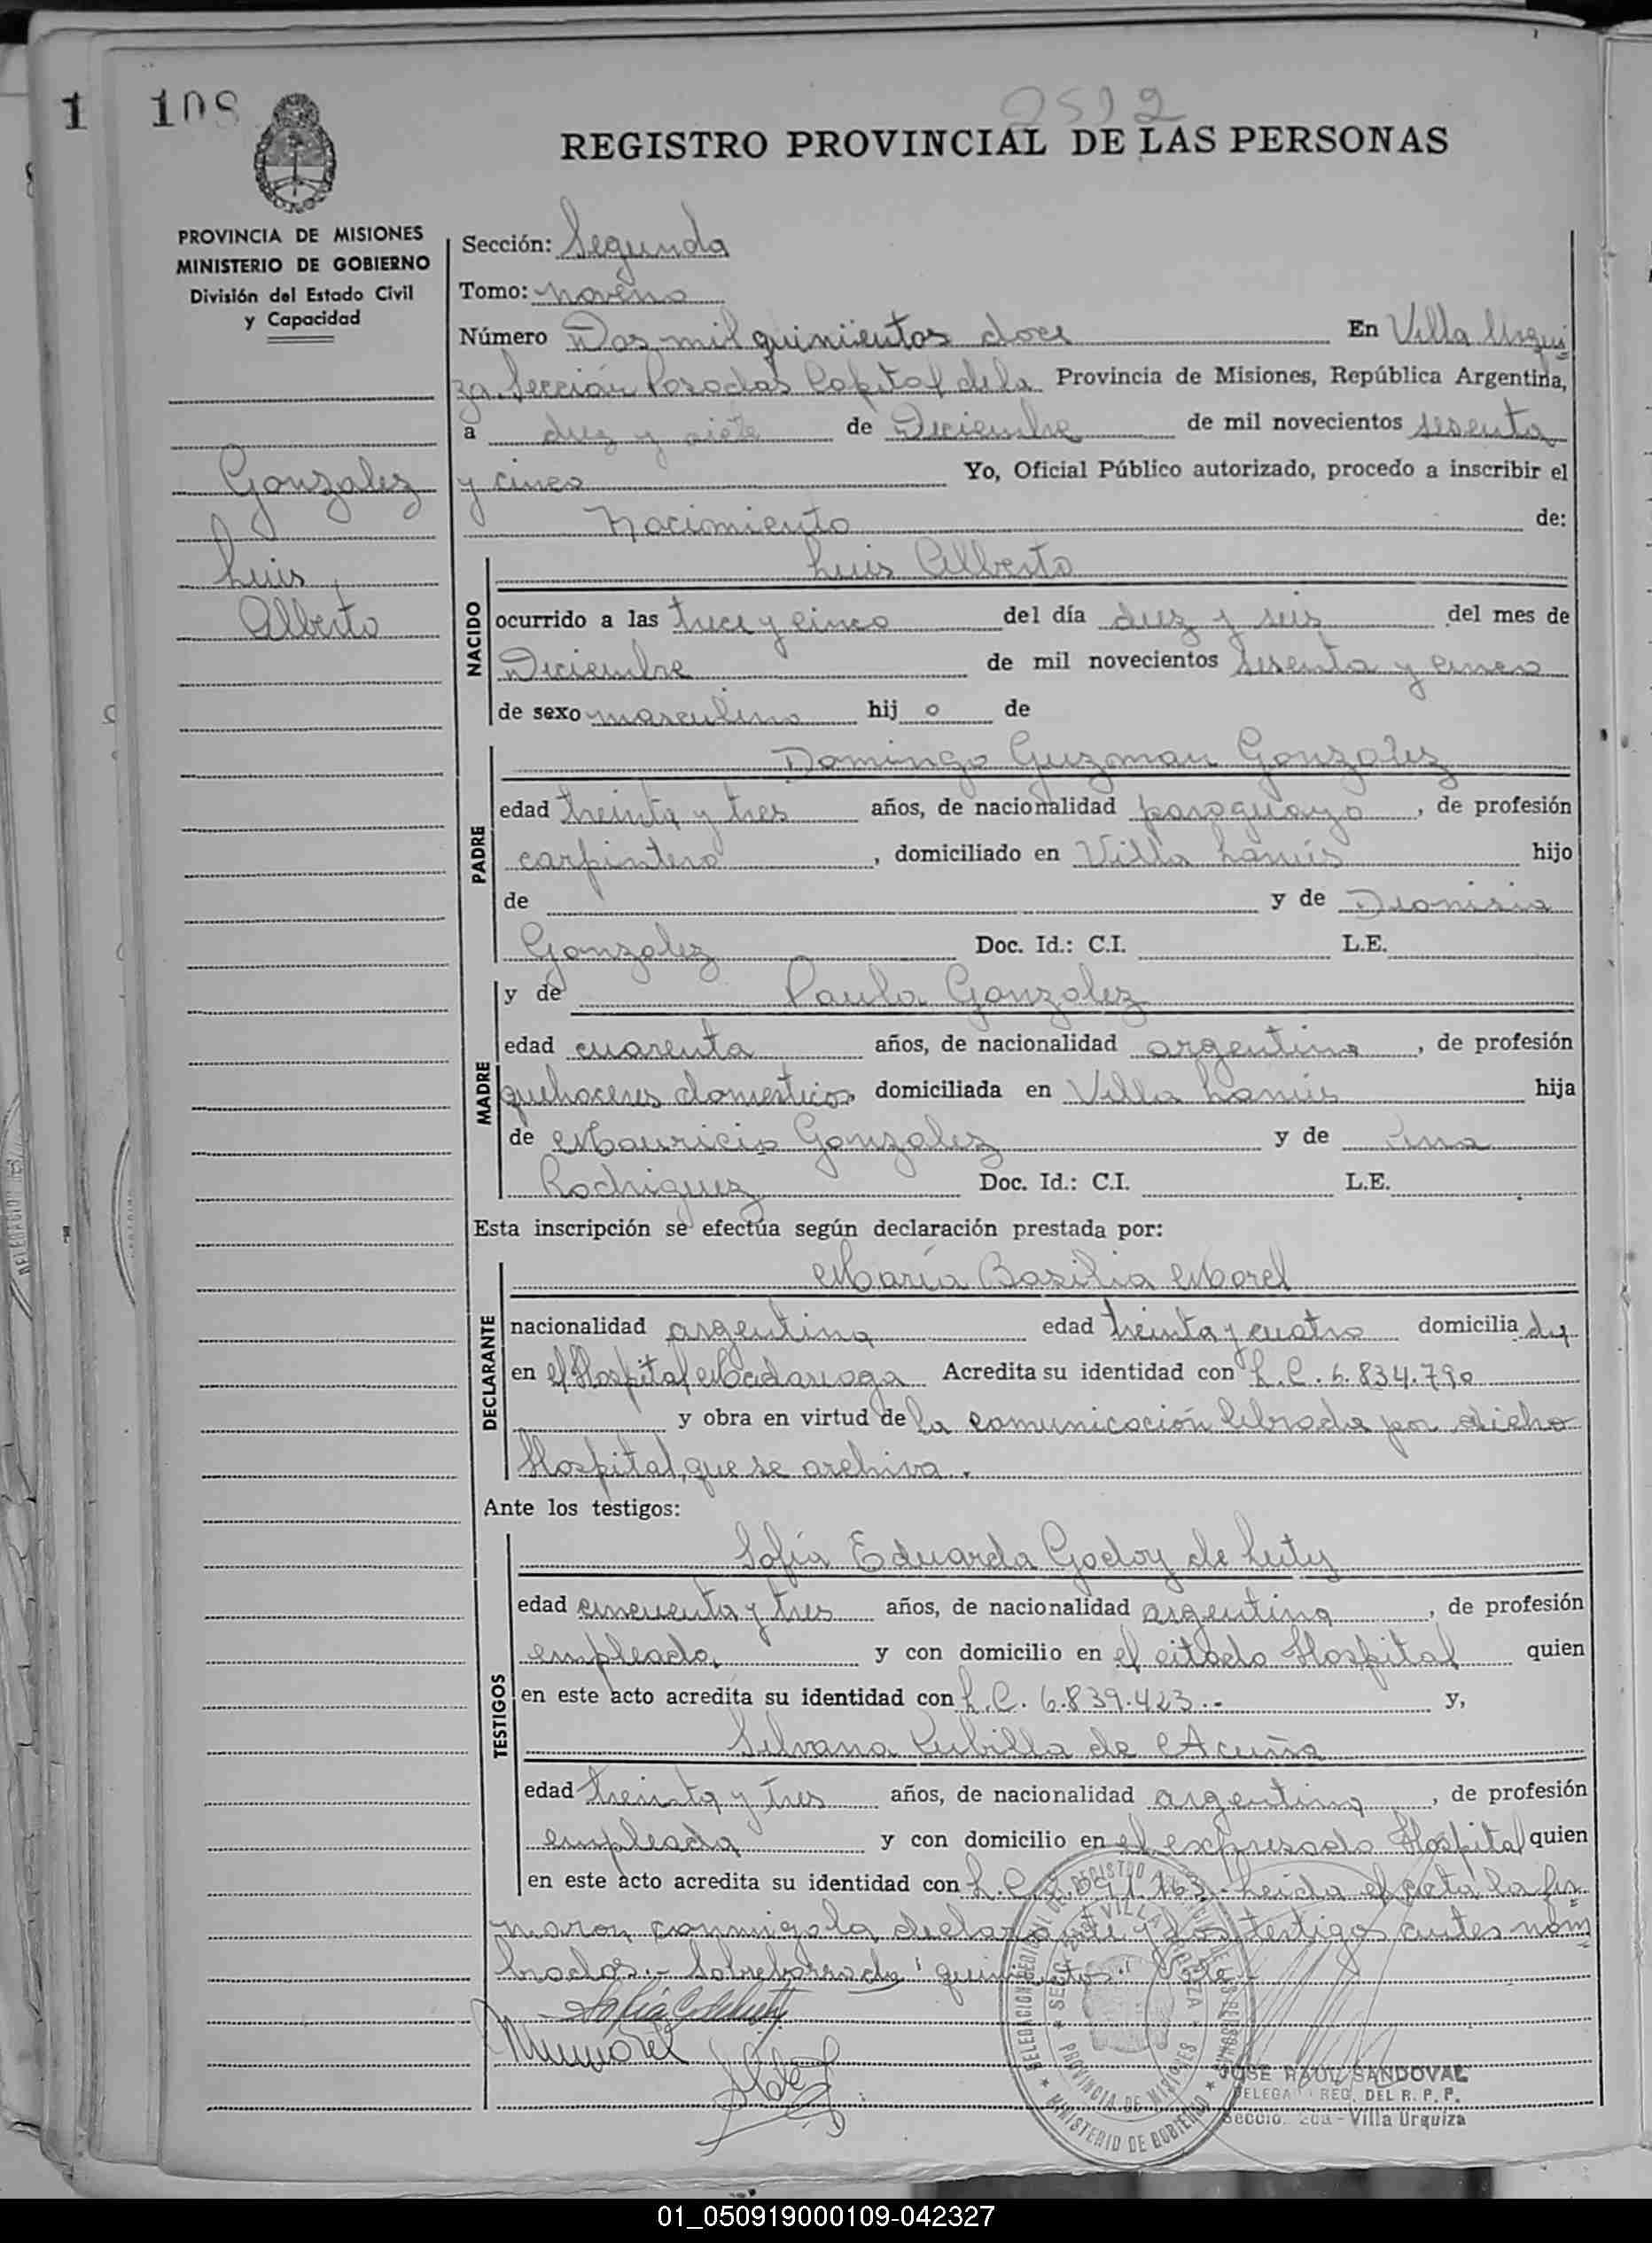 1 108
2512
REGISTRO PROVINCIAL DE LAS PERSONAS
PROVINCIA DE MISIONES
MINISTERIO DE GOBIERNO
División del Estado Civil
y Capacidad
Gonzalez
Luis
Alberto
Sección: Segunda
Tomo: noveno
Número Dos mil quinientos doce En Villa Urqui
za Sección Posadas Capital de la Provincia de Misiones, República Argentina,
a diez y siete de Diciembre de mil novecientos sesenta
y cinco Yo, Oficial Público autorizado, procedo a inscribir el
Nacimiento de:
NACIDO
Luis Alberto
ocurrido a las trece y cinco del día diez y seis del mes de
Diciembre de mil novecientos sesenta y cinco
de sexo masculino hij o de
PADRE
Domingo Guzman Gonzalez
edad treinta y tres años, de nacionalidad paraguayo, de profesión
carpintero, domiciliado en Villa Lanús hijo
de y de Dionisia
Gonzalez Doc. Id.: C.I. L.E.
MADRE
y de Paula Gonzalez
edad cuarenta años, de nacionalidad argentina, de profesión
quehaceres domesticos, domiciliada en Villa Lanús hija
de Mauricio Gonzalez y de
Rodriguez Doc. Id.: C.I. L.E.
Esta inscripción se efectúa según declaración prestada por:
DECLARANTE
María Basilia Morel
nacionalidad argentina edad treinta y cuatro domicilia da
en el Hospital Madariaga Acredita su identidad con L.C. 6.834.790
y obra en virtud de la comunicación librada por dicho
Hospital, que se archiva.
Ante los testigos:
TESTIGOS
Sofía Eduarda Godoy de Luty
edad cincuenta y tres años, de nacionalidad argentina, de profesión
empleada y con domicilio en el citado Hospital quien
en este acto acredita su identidad con L.C. 6.839.423.- y,
Silvana Cubilla de Acuña
edad treinta y tres años, de nacionalidad argentina, de profesión
empleada y con domicilio en el expresado Hospital quien
en este acto acredita su identidad con L.C. Leida el acta la fir
maron conmigo la declarante y los testigos antes nom
brados.- Sobreborrado "quinientos" Vale.-
MMorel
DELEGACION REGIONAL DEL REGISTRO
SECC. 2da VILLA URQUIZA
PROVINCIA DE MISIONES
MINISTERIO DE GOBIERNO
JOSE RAUL SANDOVAL
DELEGA REG. DEL R. P. P.
Seccio. 2da - Villa Urquiza
01_050919000109-042327